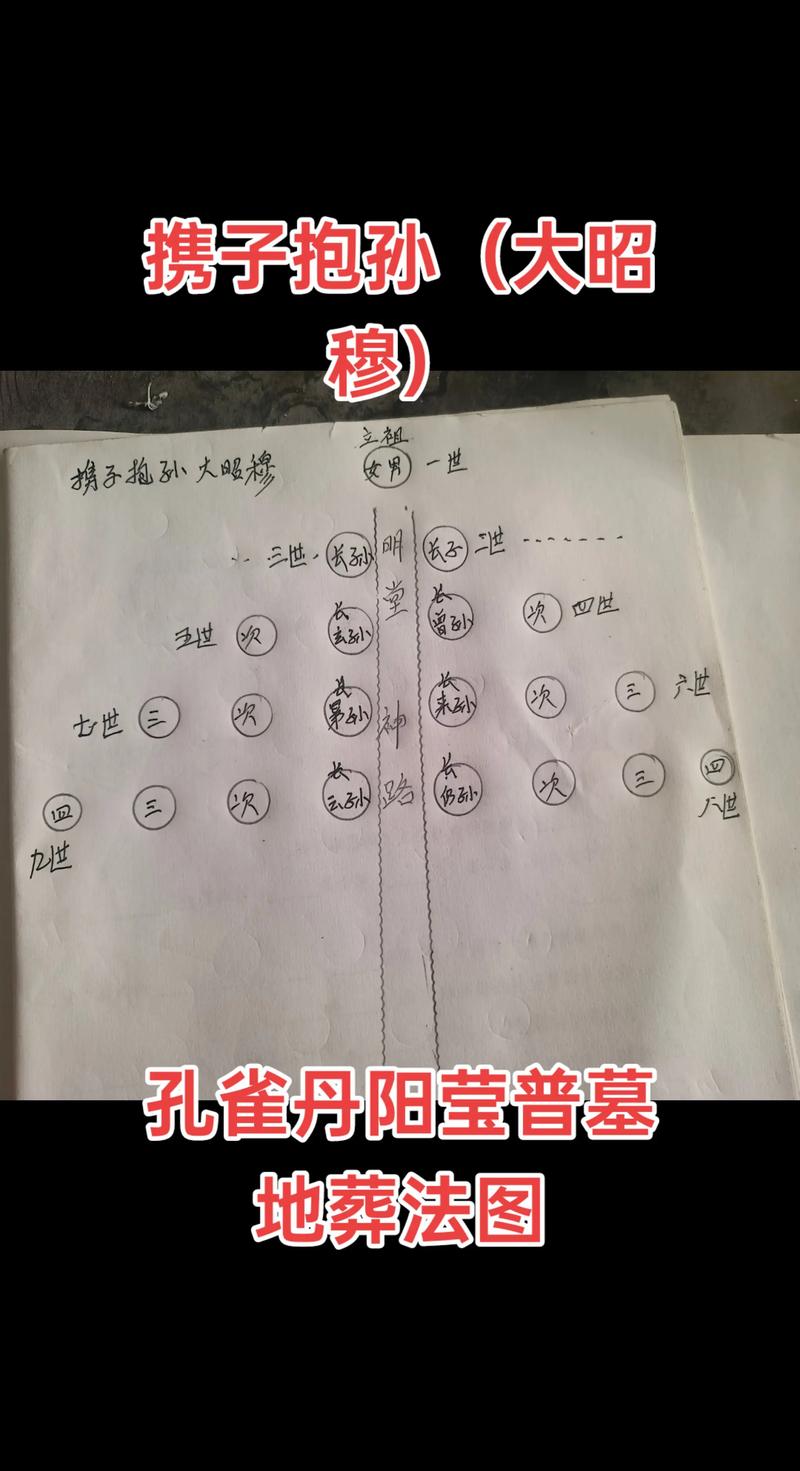 携子抱孙（大昭
穆）
立祖
携子抱孙 大昭穆 女男 一世
三世 长孙 明 长子 二世
堂
五世 次 长玄孙 长曾孙 次 四世
七世 三 次 长晜孙 神 长来孙 次 三 六世
四 三 次 长云孙 路 长仍孙 次 三 四
九世 八世
孔雀丹阳莹普墓
地葬法图